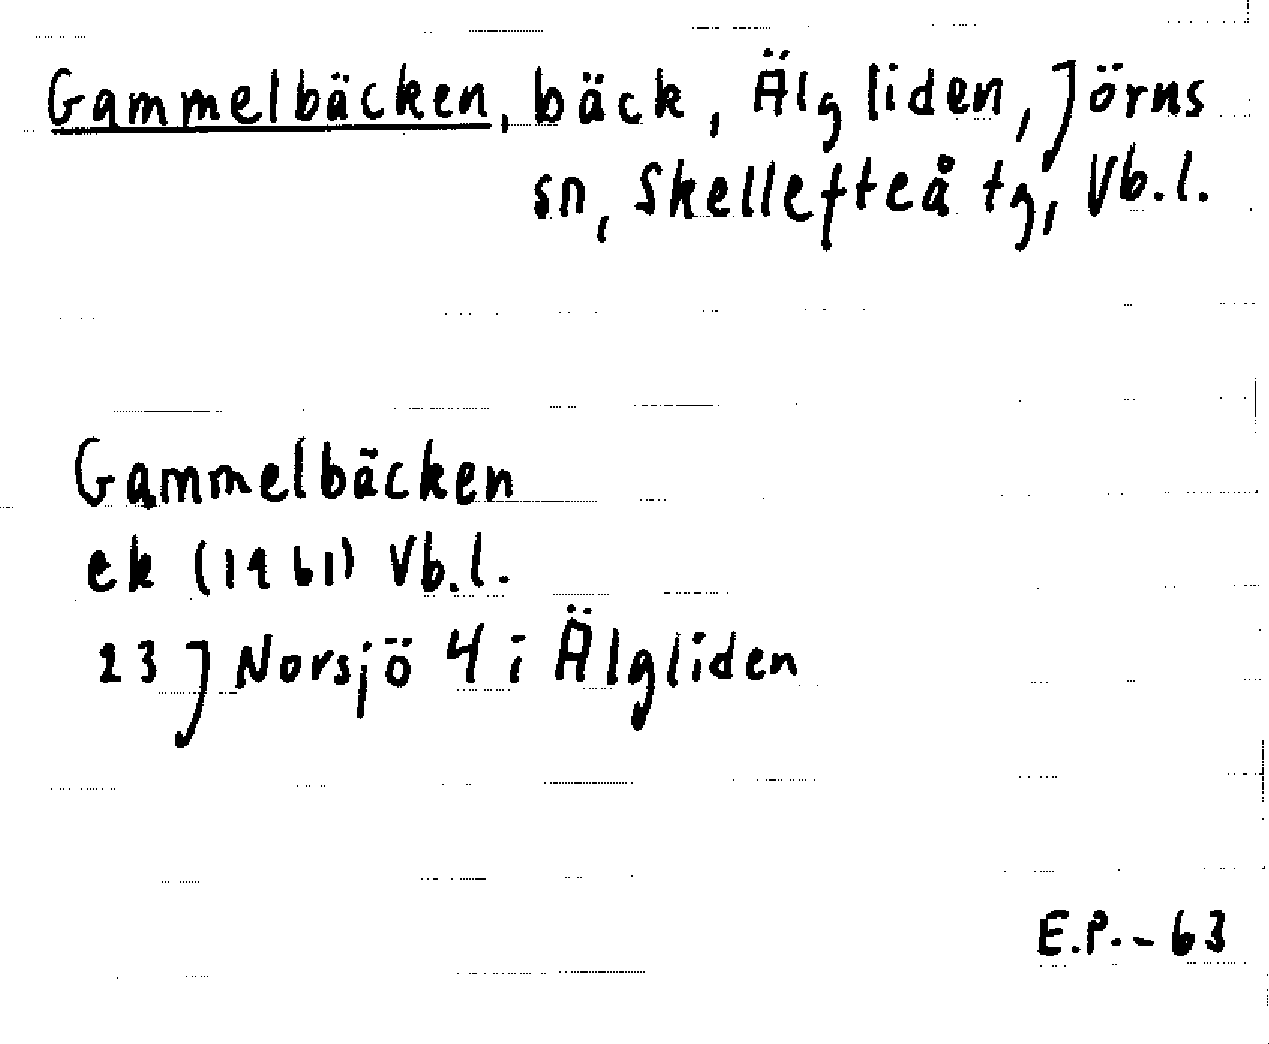 Gammelbäcken, bäck, Älgliden, Jörns
sn, Skellefteå tg, Vb.l.
Gammelbäcken
ek (1961) Vb.l.
23 J Norsjö 4 i Älgliden
E.P.-63